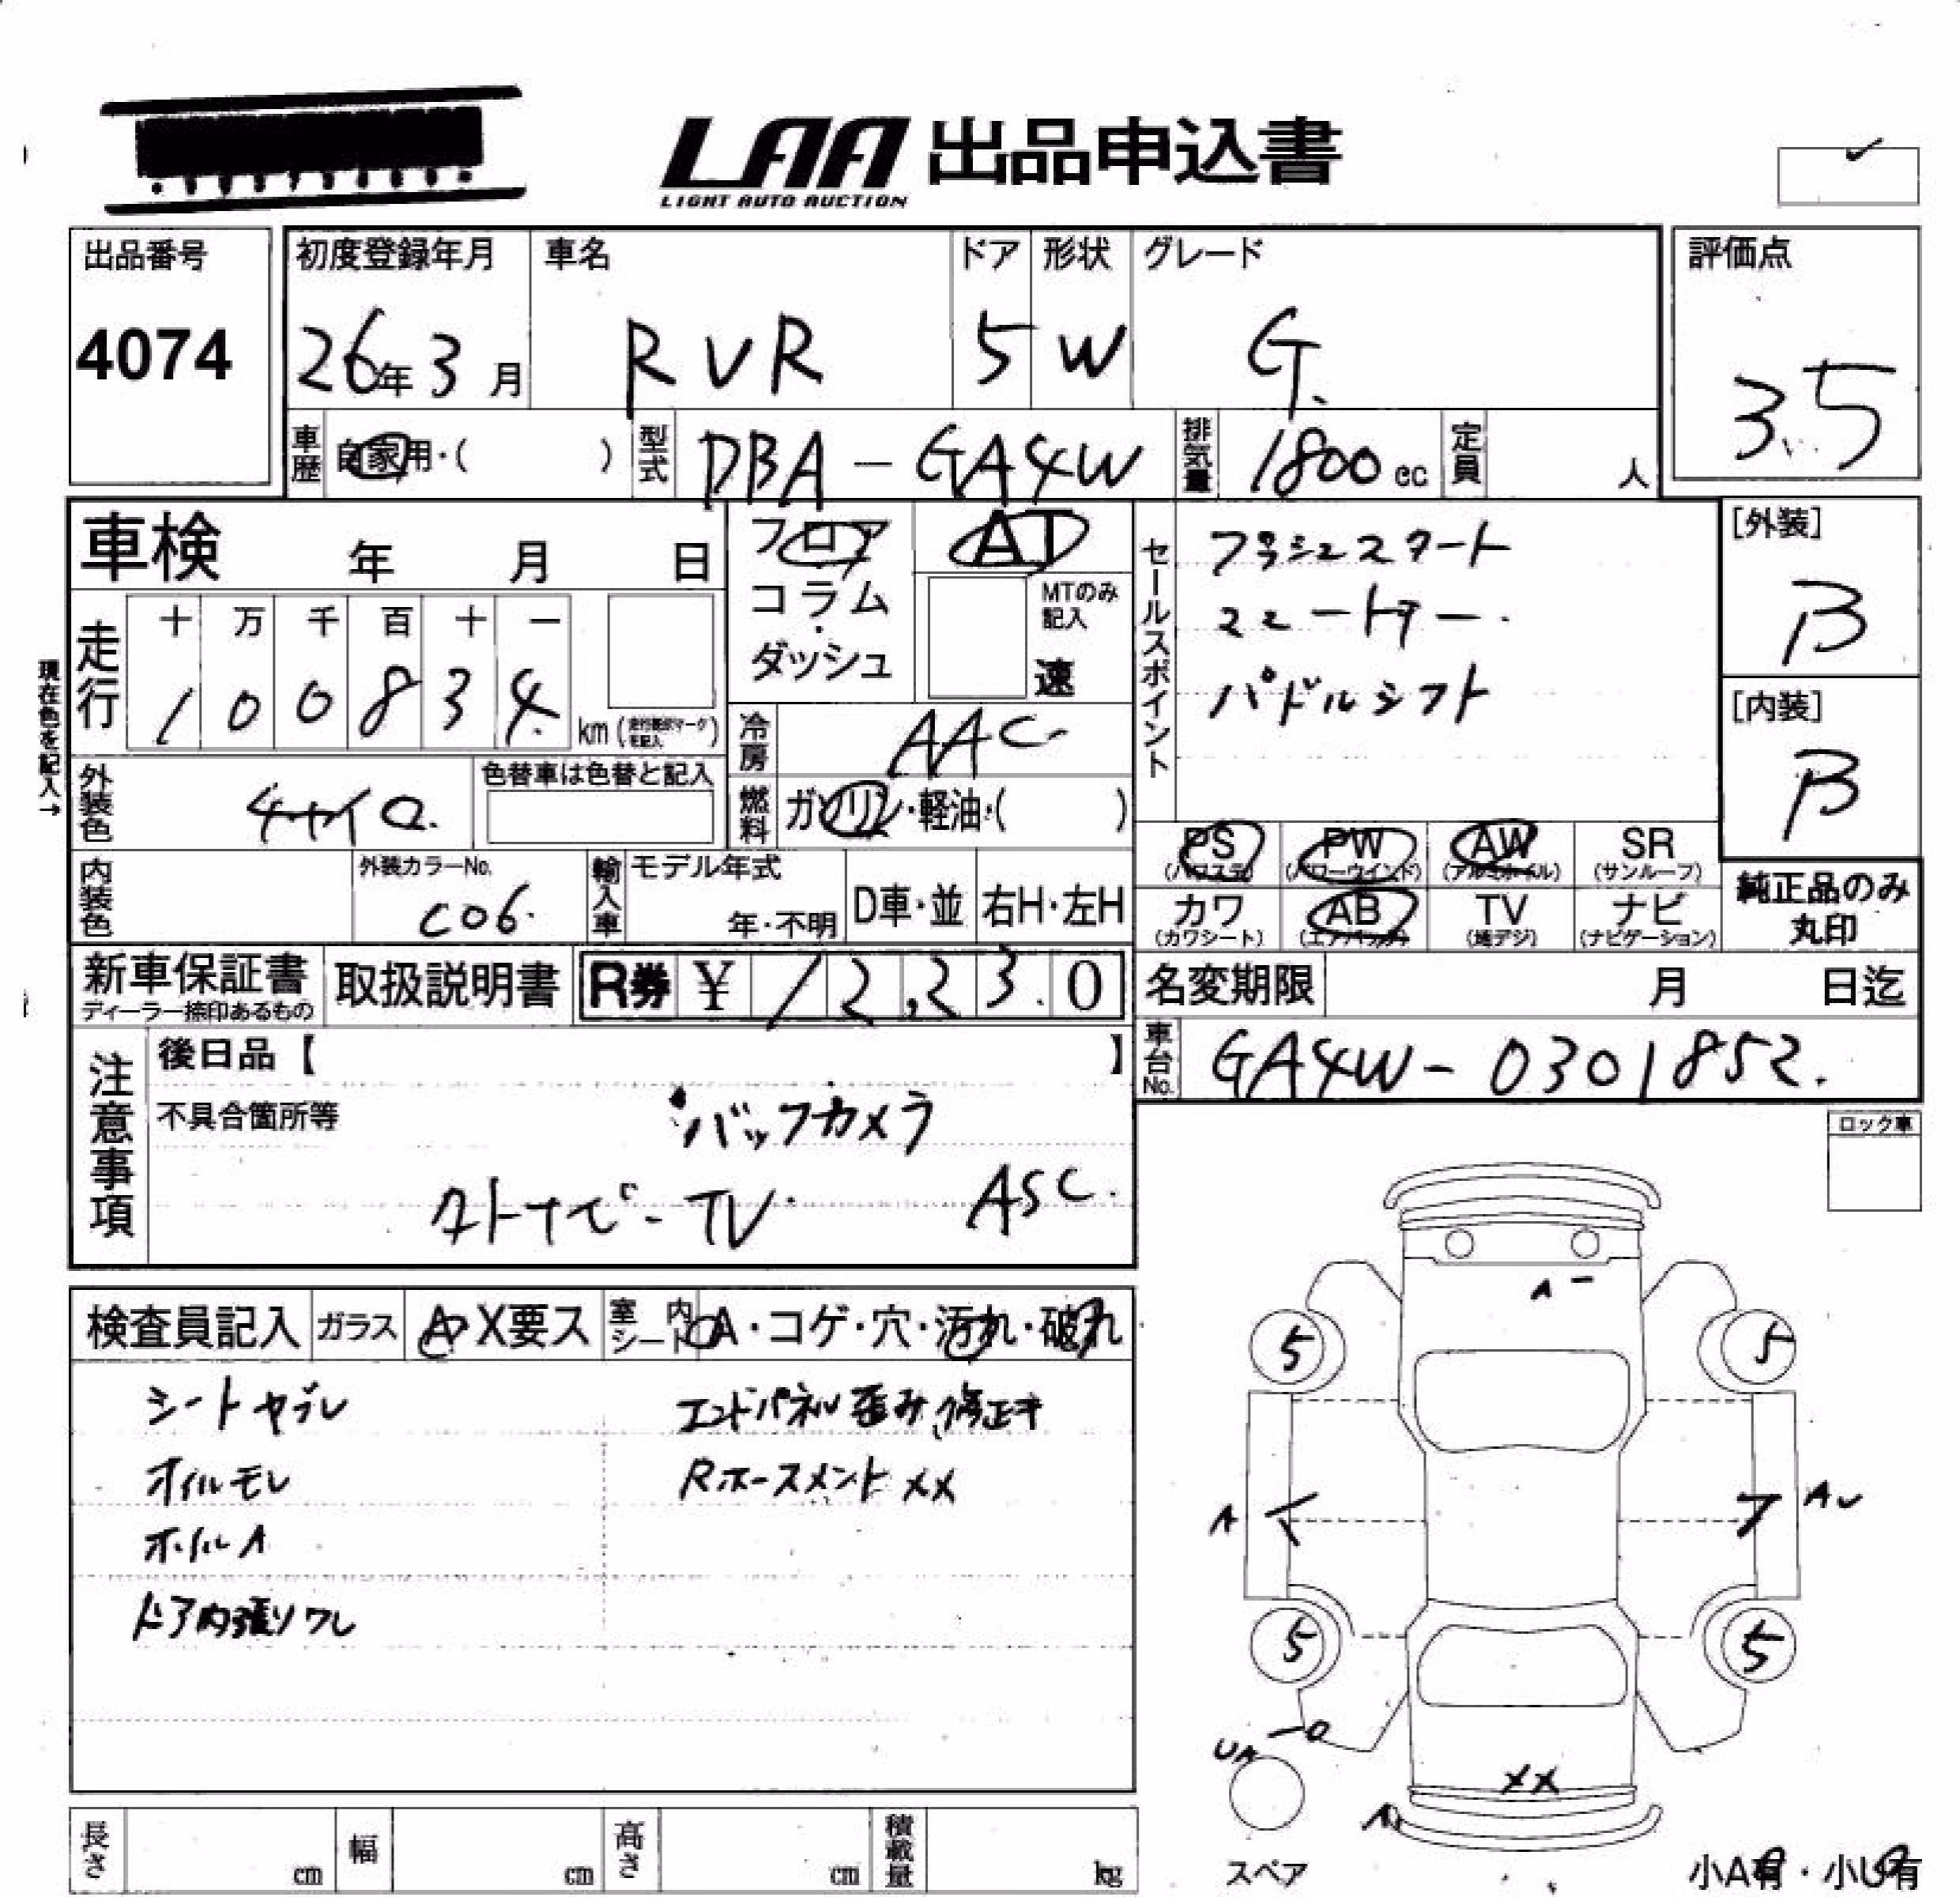 LAA 出品申込書
LIGHT AUTO AUCTION
出品番号 初度登録年月 車名 ドア 形状 グレード 評価点
4074 26年3月 RVR 5 W G. 3.5
車歴 自家用・( ) 型式 DBA-GA4W 排気量 1800cc 定員 人
車検 年 月 日 フロア AT セールスポイント プッシュスタート [外装] B
コラム・ダッシュ MTのみ記入 速
走行 十 万 千 百 十 一
1 0 0 8 3 4 km
パドルシフト
[内装] B
冷房 AAC
現在色を記入→
外装色 色替車は色替と記入
燃料 ガソリン・軽油・( )
PS (パワステ) PW (パワーウインド) AW (アルミホイル) SR (サンルーフ)
内装色 外装カラーNo. C06. 輸入車 モデル年式 年・不明 D車・並 右H・左H
カワ (カワシート) AB (エアバック) TV (地デジ) ナビ (ナビゲーション)
純正品のみ丸印
新車保証書 ディーラー捺印あるもの 取扱説明書 R券 ¥ 12,230 名変期限 月 日迄
車台No. GA4W-0301852.
注意事項 後日品【 】
不具合箇所等 バックカメラ
TV. ASC.
ロック車
検査員記入 ガラス A・X要ス 室内シート A・コゲ・穴・汚れ・破れ
シートヤブレ エンドパネル歪み修正キ
オイルモレ Rホースメント XX
ホイルA
ドア内張りワレ
A-
5 5
A A
5 5
XX
スペア
小A有・小U有
長さ cm 幅 cm 高さ cm 積載量 kg